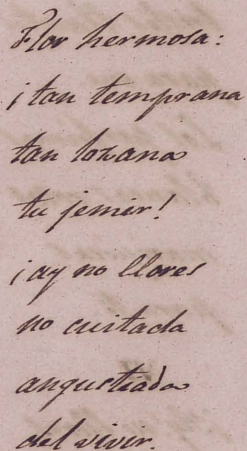 Flor hermosa:
¡tan temprana
tan lozana
tu jemir!
¡ay no llores
no cuitada
angustiada
del vivir.